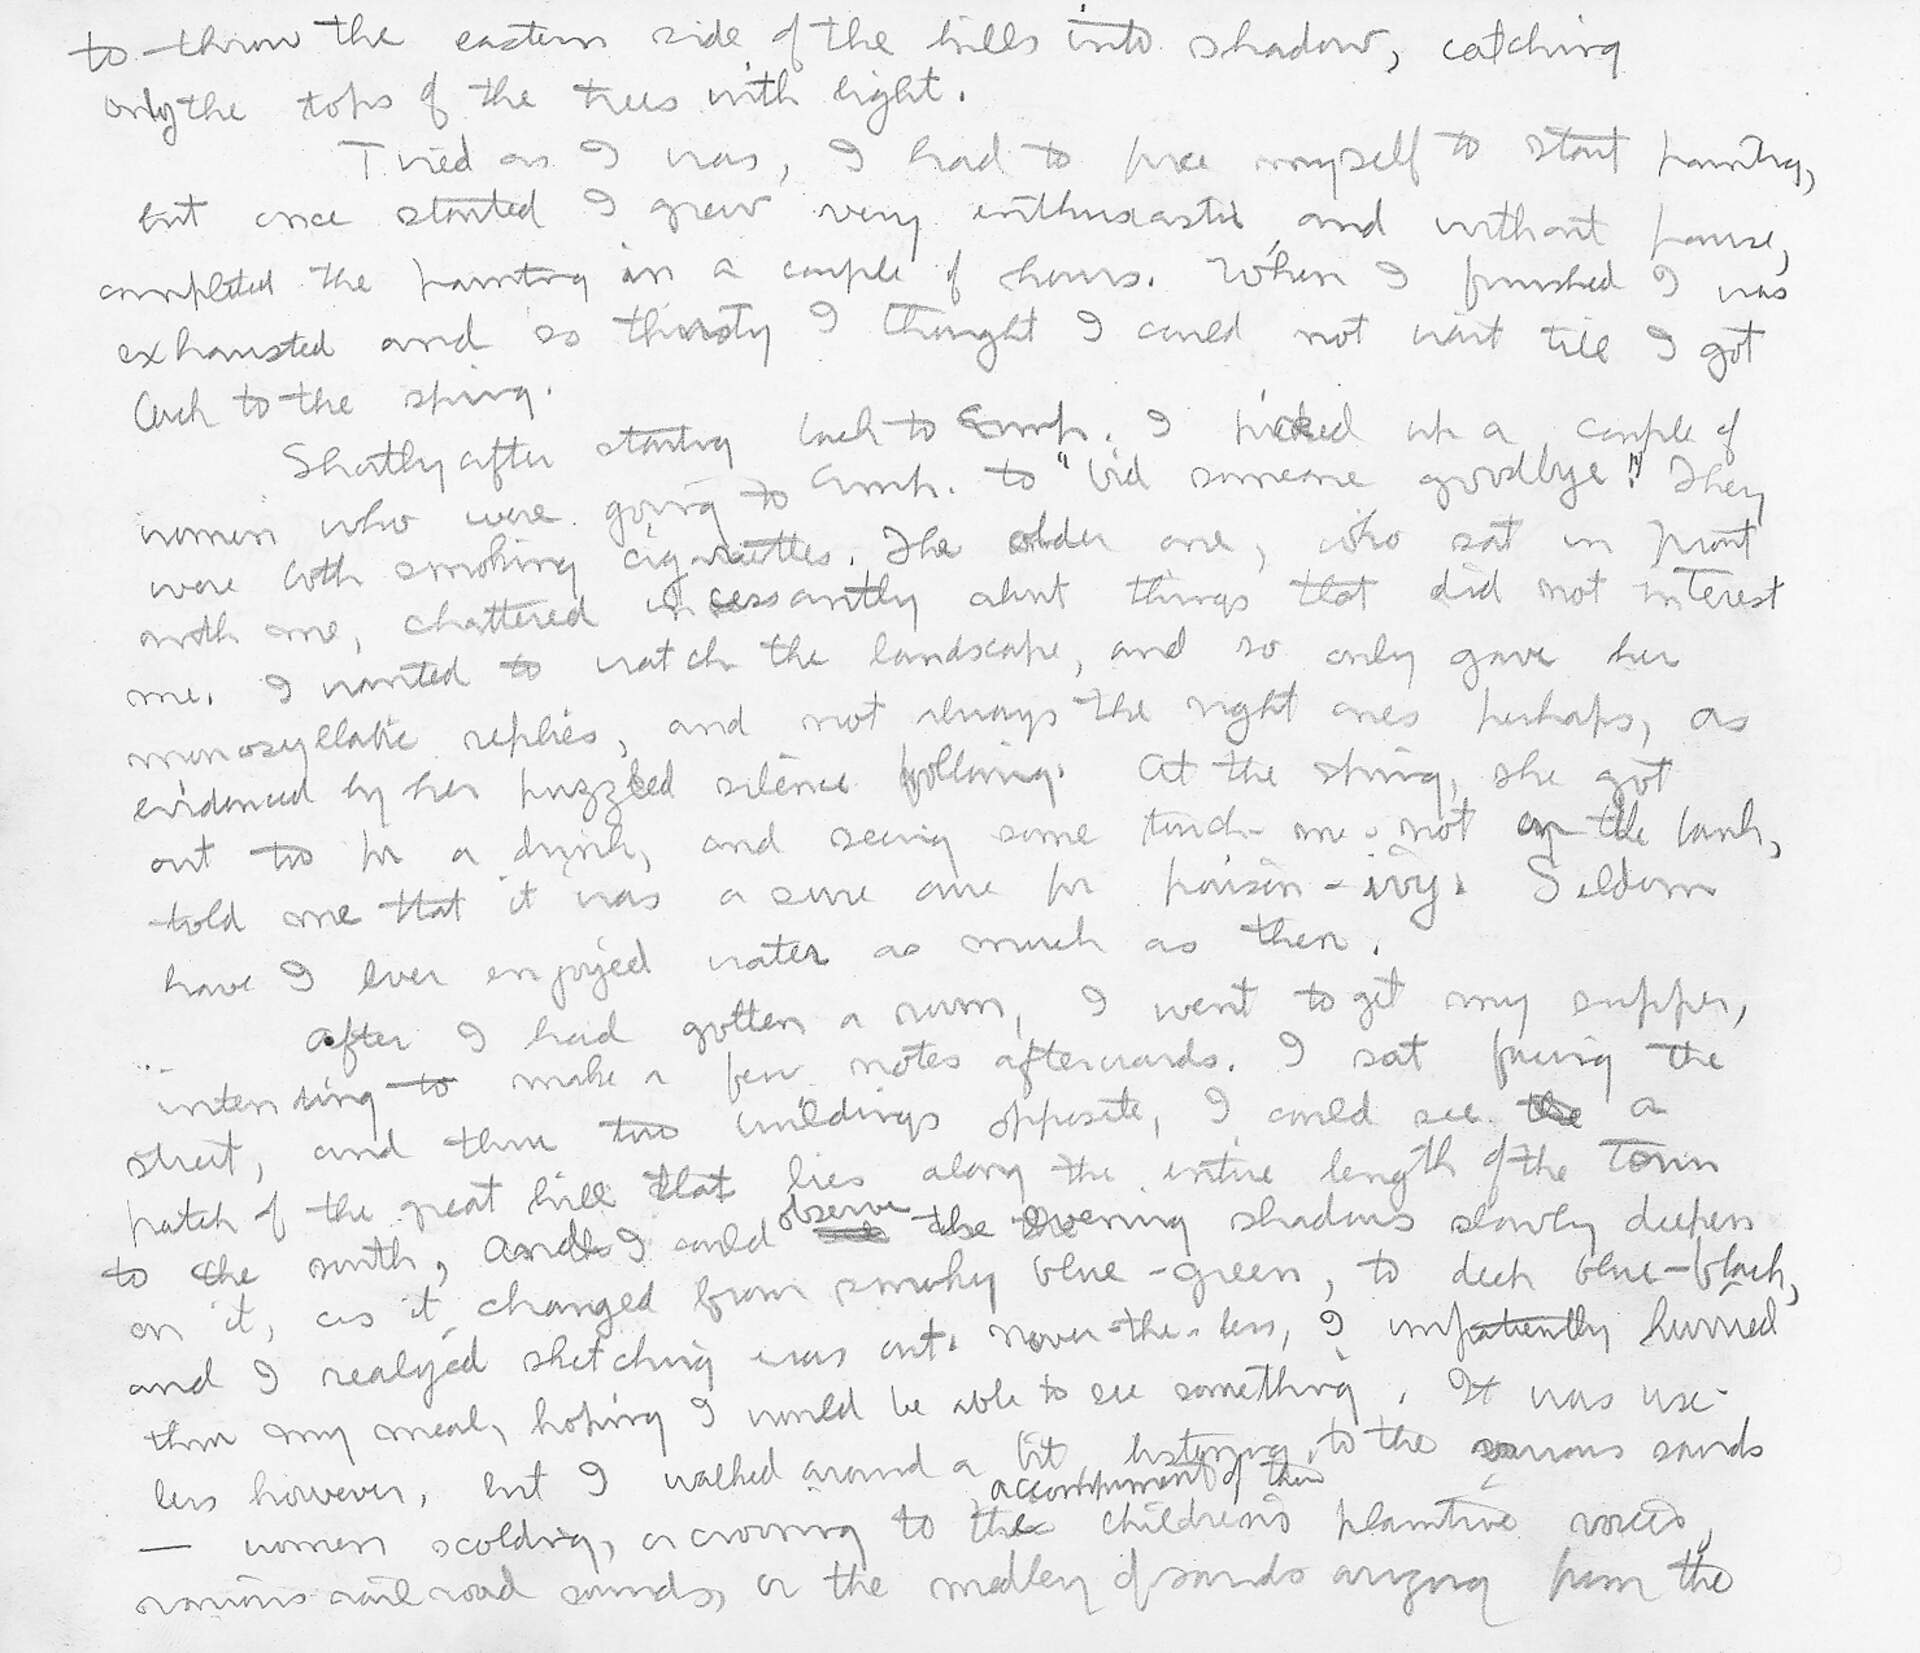 to throw the eastern side of the hills into shadow, catching
only the tops of the trees with light.
Tired as I was, I had to force myself to start painting,
but once started I grew very enthusiastic, and without pause,
completed the painting in a couple of hours. When I finished I was
exhausted and so thirsty I thought I could not wait till I got
back to the spring.
Shortly after starting back to I picked up a couple of
women who were going to to "bid someone goodbye". They
were both smoking cigarettes. The older one, who sat in front
with me, chattered incessantly about things that did not interest
me. I wanted to watch the landscape, and so only gave her
monosyllabic replies, and not always the right ones perhaps, as
evidenced by her puzzled silence following. At the spring, she got
out too for a drink, and seeing some touch-me-not on the bank,
told me that it was a sure cure for poison-ivy. Seldom
have I ever enjoyed water as much as then.
After I had gotten a room, I went to get my supper,
intending to make a few notes afterwards. I sat facing the
street, and thru two buildings opposite, I could see the a
patch of the great hill that lies along the entire length of the town
to the north, and I could observe the evening shadows slowly deepen
on it, as it changed from smoky blue-green, to deep blue-black,
and I realyed sketching was out. Never-the-less, I impatiently hurried
thru my meal, hoping I would be able to see something. It was use-
less however, but I walked around a bit, listening to the various sounds
— women scolding, or crooning to the accompniment of their children's plaintive voices,
various railroad sounds, or the medley of sounds arizing from the